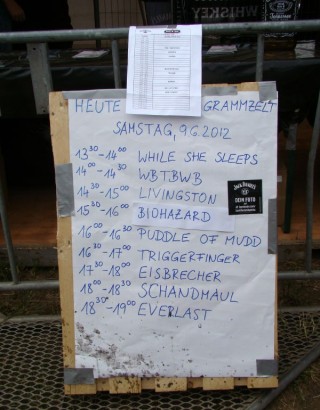 WHISKEY
HEUTE GRAMMZELT
SAMSTAG, 9.6.2012
13³⁰-14⁰⁰ WHILE SHE SLEEPS
14⁰⁰-14³⁰ WBTBWB
14³⁰-15⁰⁰ LIVINGSTON
15³⁰-16⁰⁰ BIOHAZARD
16⁰⁰-16³⁰ PUDDLE OF MUDD
16³⁰-17⁰⁰ TRIGGERFINGER
17³⁰-18⁰⁰ EISBRECHER
18⁰⁰-18³⁰ SCHANDMAUL
18³⁰-19⁰⁰ EVERLAST
JACK DANIEL'S
DEIN FOTO